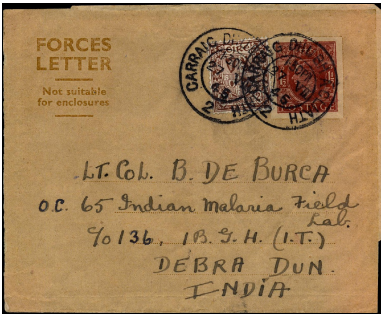 FORCES
LETTER
Not suitable
for enclosures
LT. COL. B. DE BURCA
O.C. 65 Indian Malaria Field
Lab.
c/o 136, I B. G. H. (I.T.)
DEBRA DUN.
INDIA